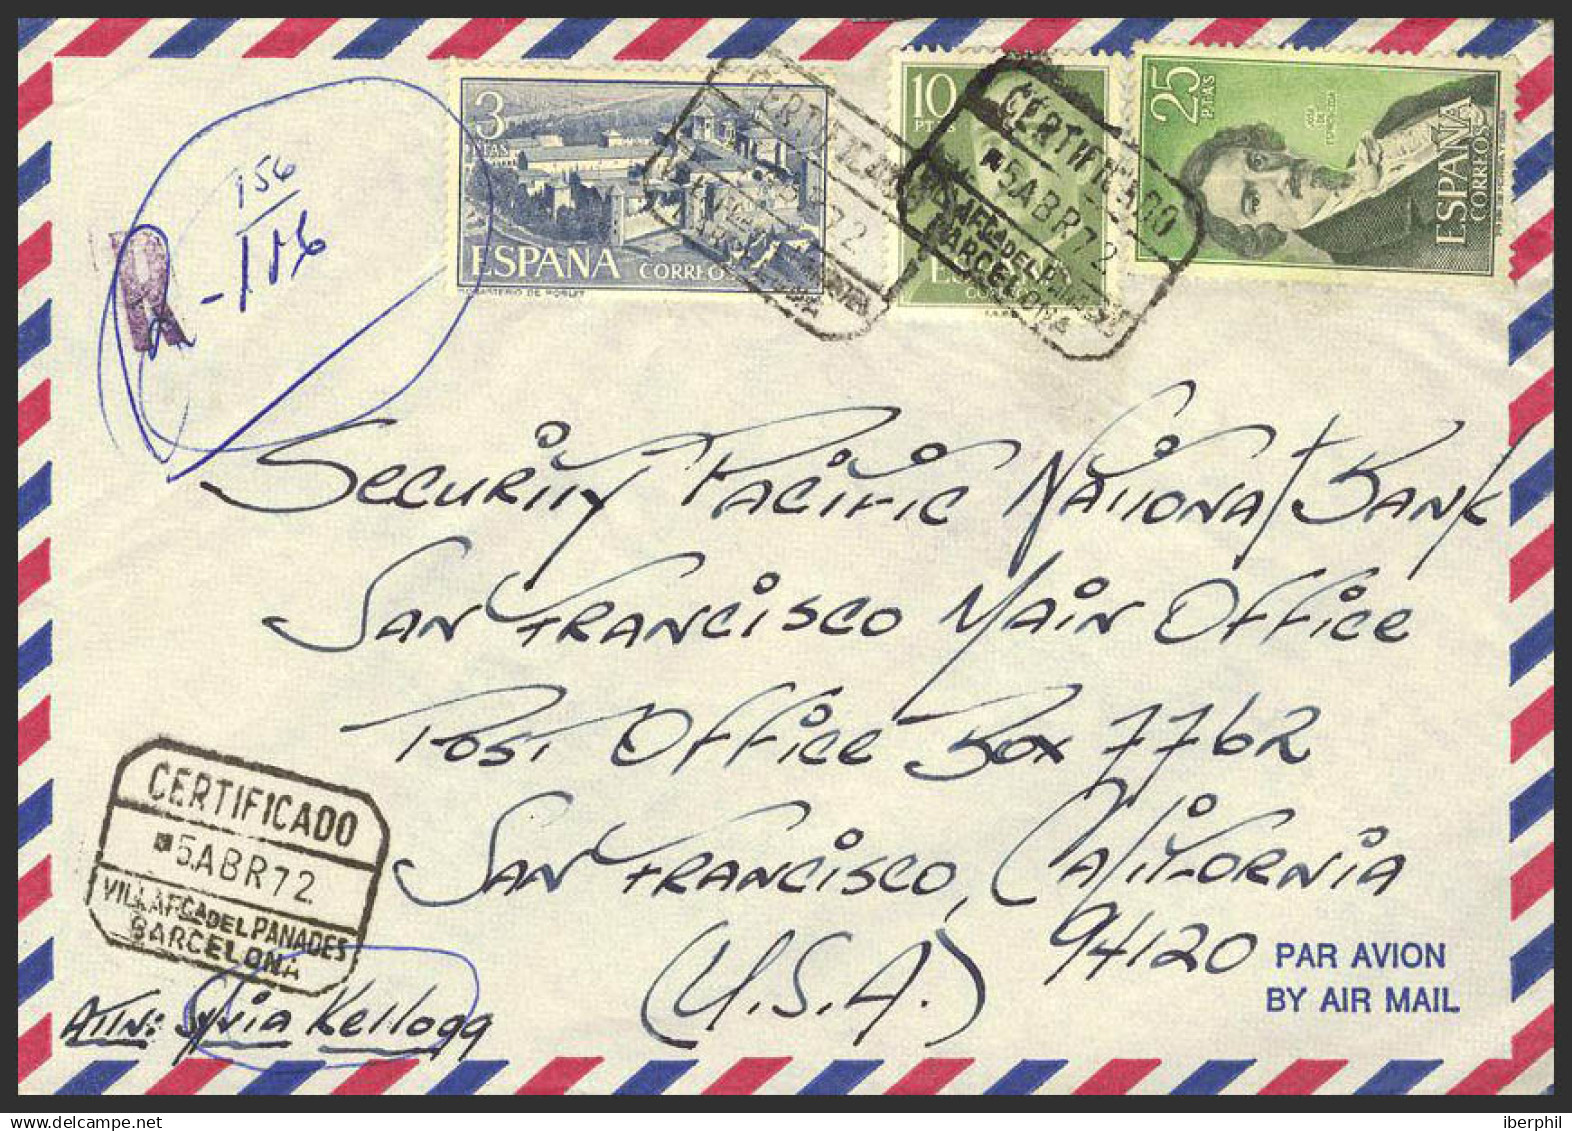 156
3
PTAS
ESPAÑA
CORREOS
MONASTERIO DE POBLET
CERTIFICADO
10
PTAS
CERTIFICADO
5 ABR 72
VILAFCA DEL PANADES
BARCELONA
25
PTAS
JOSE
DE
ESPRONCEDA
ESPAÑA
CORREOS
Security Pacific National Bank
San Francisco Main Office
Post Office Box 7762
San Francisco, California
(U.S.A.) 94120
CERTIFICADO
5.ABR72.
VILLAFCA DEL PANADES
BARCELONA
PAR AVION
BY AIR MAIL
Attn: Sylvia Kellogg
iberphil